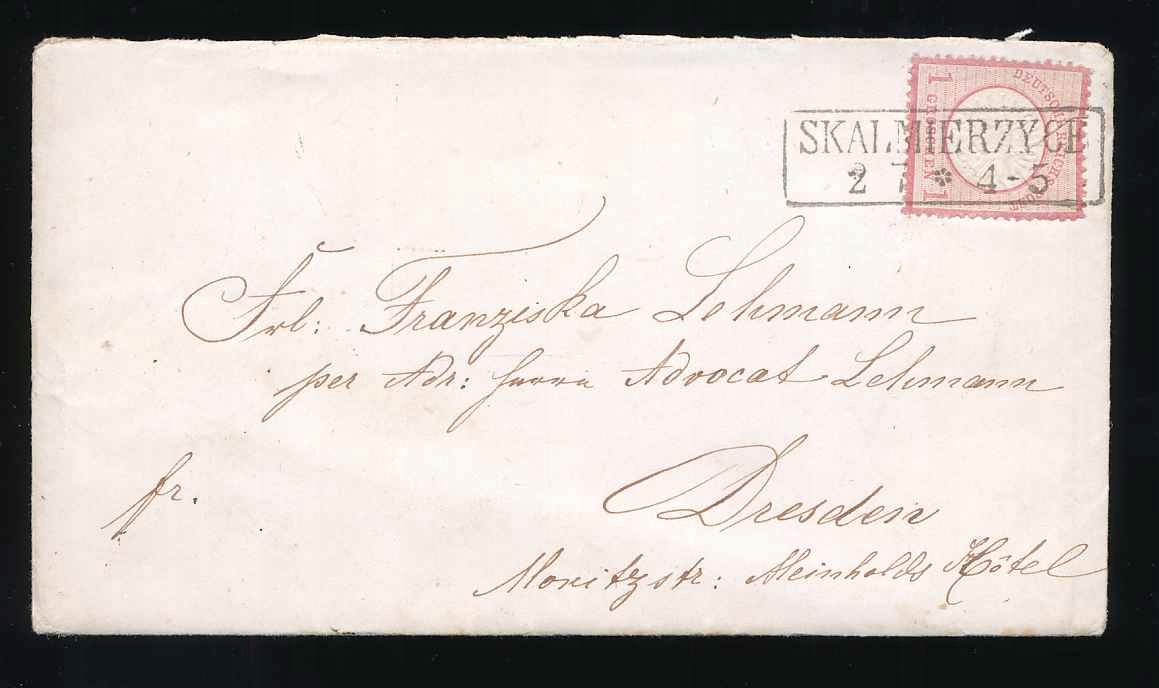 1 GROSCHEN 1
DEUTSCHE REICHS-POST
SKALMIERZYCE
2 7 * 4-5
Frl: Franziska Lehmann
per Adr: Herrn Advocat Lehmann
fr.
Dresden
Moritzstr: Meinholds Hôtel